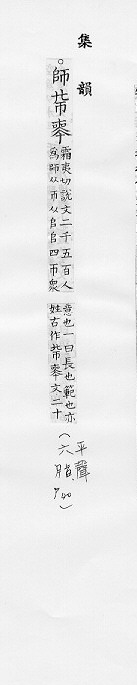 集韻
。師
霜夷切說文二千五百人
為師从帀从𠂤𠂤四帀眾
意也一曰長也範也亦
姓古作 文二十
(平聲
六脂
P40)